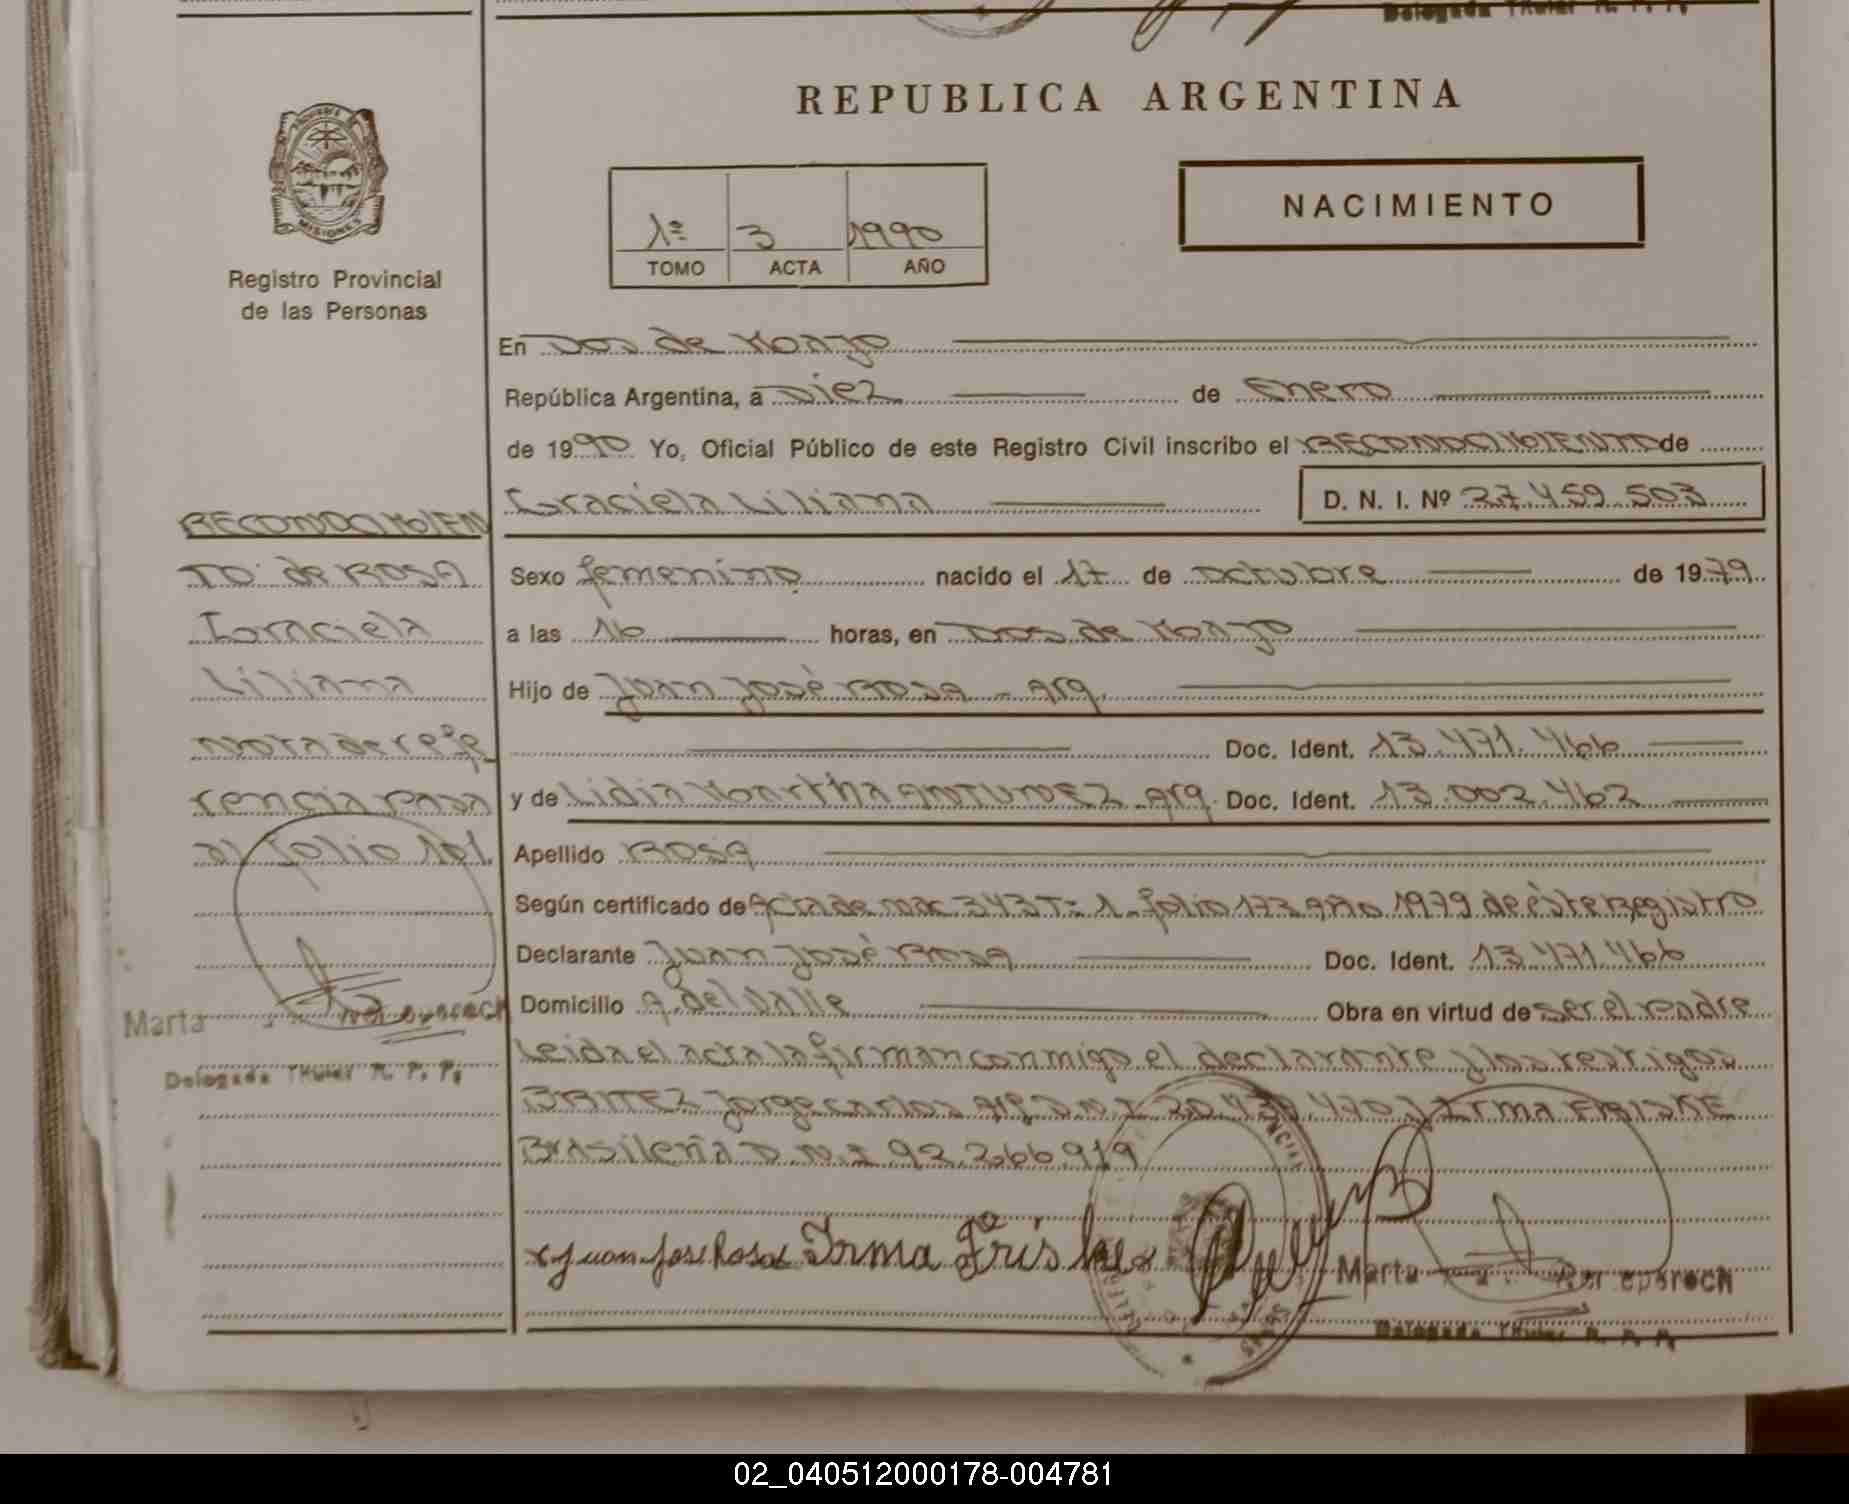 Delegada Titular R. P. P.
REPUBLICA ARGENTINA
NACIMIENTO
1º 3 1990
TOMO ACTA AÑO
MISIONES
Registro Provincial
de las Personas
En Dos de Mayo
República Argentina, a Diez de Enero
de 1990 Yo, Oficial Público de este Registro Civil inscribo el RECONOCIMIENTO de
Graciela Liliana D. N. I. Nº 27.459.503
RECONOCIMIEN
TO de ROSA
Graciela
Liliana
Nota de refe
rencia pasa
al folio 101
Marta
Delegada Titular R. P. P.
Sexo femenino nacido el 17 de octubre de 1979
a las 16 horas, en Dos de Mayo
Hijo de Juan José ROSA - Arg.
Doc. Ident. 13.471.466
y de Lidia Martha ANTUNEZ Arg. Doc. Ident. 13.002.462
Apellido ROSA
Según certificado de Acta de nac 343 Tº 1 folio 173 año 1979 de éste Registro
Declarante Juan José ROSA Doc. Ident. 13.471.466
Domicilio A. del Valle Obra en virtud de ser el padre
Leida el acta la firman conmigo el declarante y los testigos
BRITEZ Jorge Carlos Arg D.N.I 20.430.470 y Irma FRISKE
Brasileña D.N.I 92.266.919
x Juan Jose Rosa Irma Friske
Marta
Delegada Titular R. P. P.
02_040512000178-004781